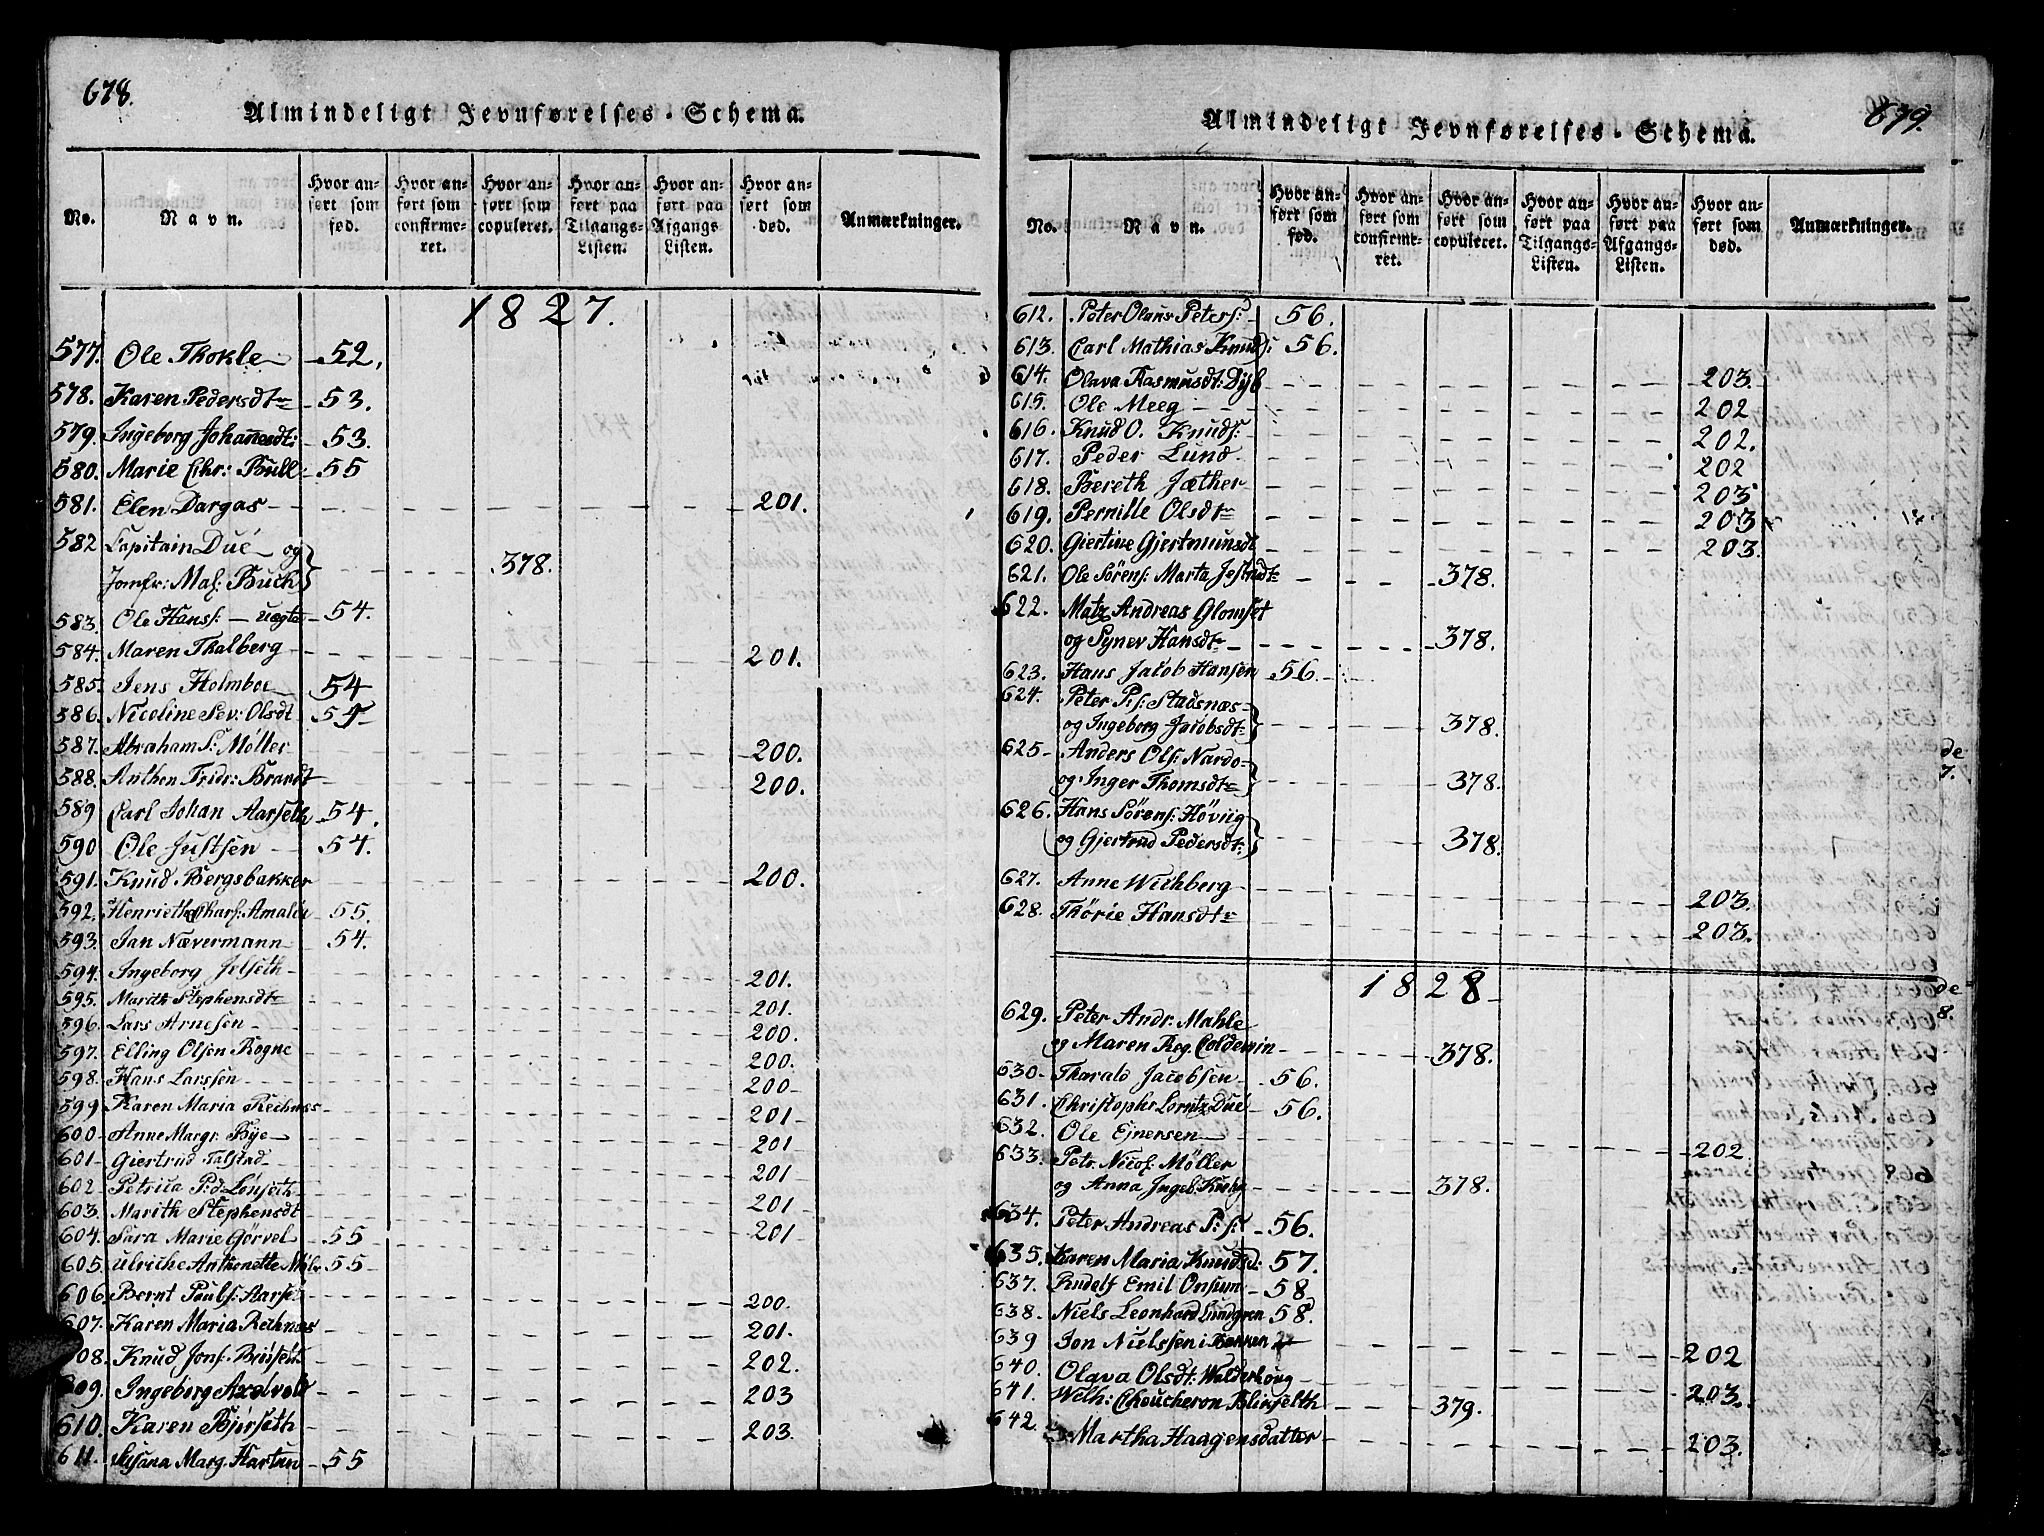 678.
Almindeligt Jevnførelses-Schema.
No.
Navn.
Hvor anført som fød.
Hvor anført som confirmeret.
Hvor anført som copuleret.
Hvor anført paa Tilgangs-Listen.
Hvor anført paa Afgangs Listen.
Hvor anført som død.
Anmærkninger.
1827.
577. Ole Thokle 52.
578. Karen Pedersdtr 53.
579. Ingeborg Johannesdt: 53.
580. Marie Chr: Bull 55
581. Elen Dargas 201.
582 Capitain Dué og
Jomfr: Mas: Buck 378.
583. Ole Hans: uægte 54.
584. Maren Thalberg 201.
585. Jens Holmboe 54
586. Nicoline Sev: Olsdt 54
587. Abraham S: Møller 200.
588. Anthon Fridr: Brandt 200.
589 Carl Johan Aarseth 54.
590 Ole Justsen 54.
591. Knud Bergsbakker 200.
592. Henriethe Amalia 55.
593. Jan Nævermann 54.
594. Ingeborg Jelseth 201.
595. Marith Stephensdtr 201.
596. Lars Arnesen 200.
597. Elling Olsen Rogne 200.
598. Hans Larssen 200
599. Karen Maria Rechnes 201
600 Anne Margr: Bye 201
601 Giertrud Talstad 201
602 Petrica Pd Lønseth 201
603. Marith Stephensdt 201
604. Sara Marie Gørvel 55
605. Ulriche Anthonette 55
606. Bernt Pouls: Aarset 200.
607. Karen Maria Rechnes 201.
608. Knud Jons: Biørseth 202.
609. Ingeborg Axelvold 203
610. Karen Bjørseth 203.
611. Susana Marg. Hartun 55
679.
Almindeligt Jevnførelses-Schema.
No.
Navn.
Hvor anført som fød.
Hvor anført som confirmeret.
Hvor anført som copuleret.
Hvor anført paa Tilgangs-Listen.
Hvor anført paa Afgangs-Listen.
Hvor anført som død.
Anmærkninger.
612. Peter Olaus Peters: 56.
613. Carl Mathias Knuds: 56.
614. Olava Rasmusdt: Dyb 203
615. Ole Meeg 202
616. Knud O. Knuds: 202.
617. Peder Lund 202
618. Bereth Jæther 203
619. Pernille Olsdtr 203
620. Giertine Gjertmundsdt 203.
621. Ole Sörens: Marta Jetmundtr 378.
622. Matz Andreas Glomset
og Synev Hansdtr 378.
623. Hans Jacob Hansen 56.
624. Peter P:s: Stadsnæs
og Ingeborg Jacobsdtr 378.
625 Anders Ols: Nardo
og Inger Thomsdtr 378.
626. Hans Sörens: Höviig
og Gjertrud Pedersdt: 378.
627. Anne Wichberg 203.
628. Thörie Hansdtr 203.
1828
629. Peter Andr. Mahle
og Maren Reg. Coldevin 378.
630 Tharald Jacobsen 56.
631. Christophr Lorntz Dué 56.
632. Ole Ejnersen 202
633. Petr. Nicol: Møller
og Anna Ingeb: 378.
634. Peter Andreas P:s: 56.
635. Karen Maria Knudsd: 57.
637. Rudolf Emil Onsum 58
638. Niels Leonhard Lundgren 58
639 Jon Nielssen i Bakken 202
640. Olava Olsdt: Walderhoug 203.
641. Welh: Choucheron Blirseth 379.
642 Martha Haagensdatter 203.
de
7.
de
8.